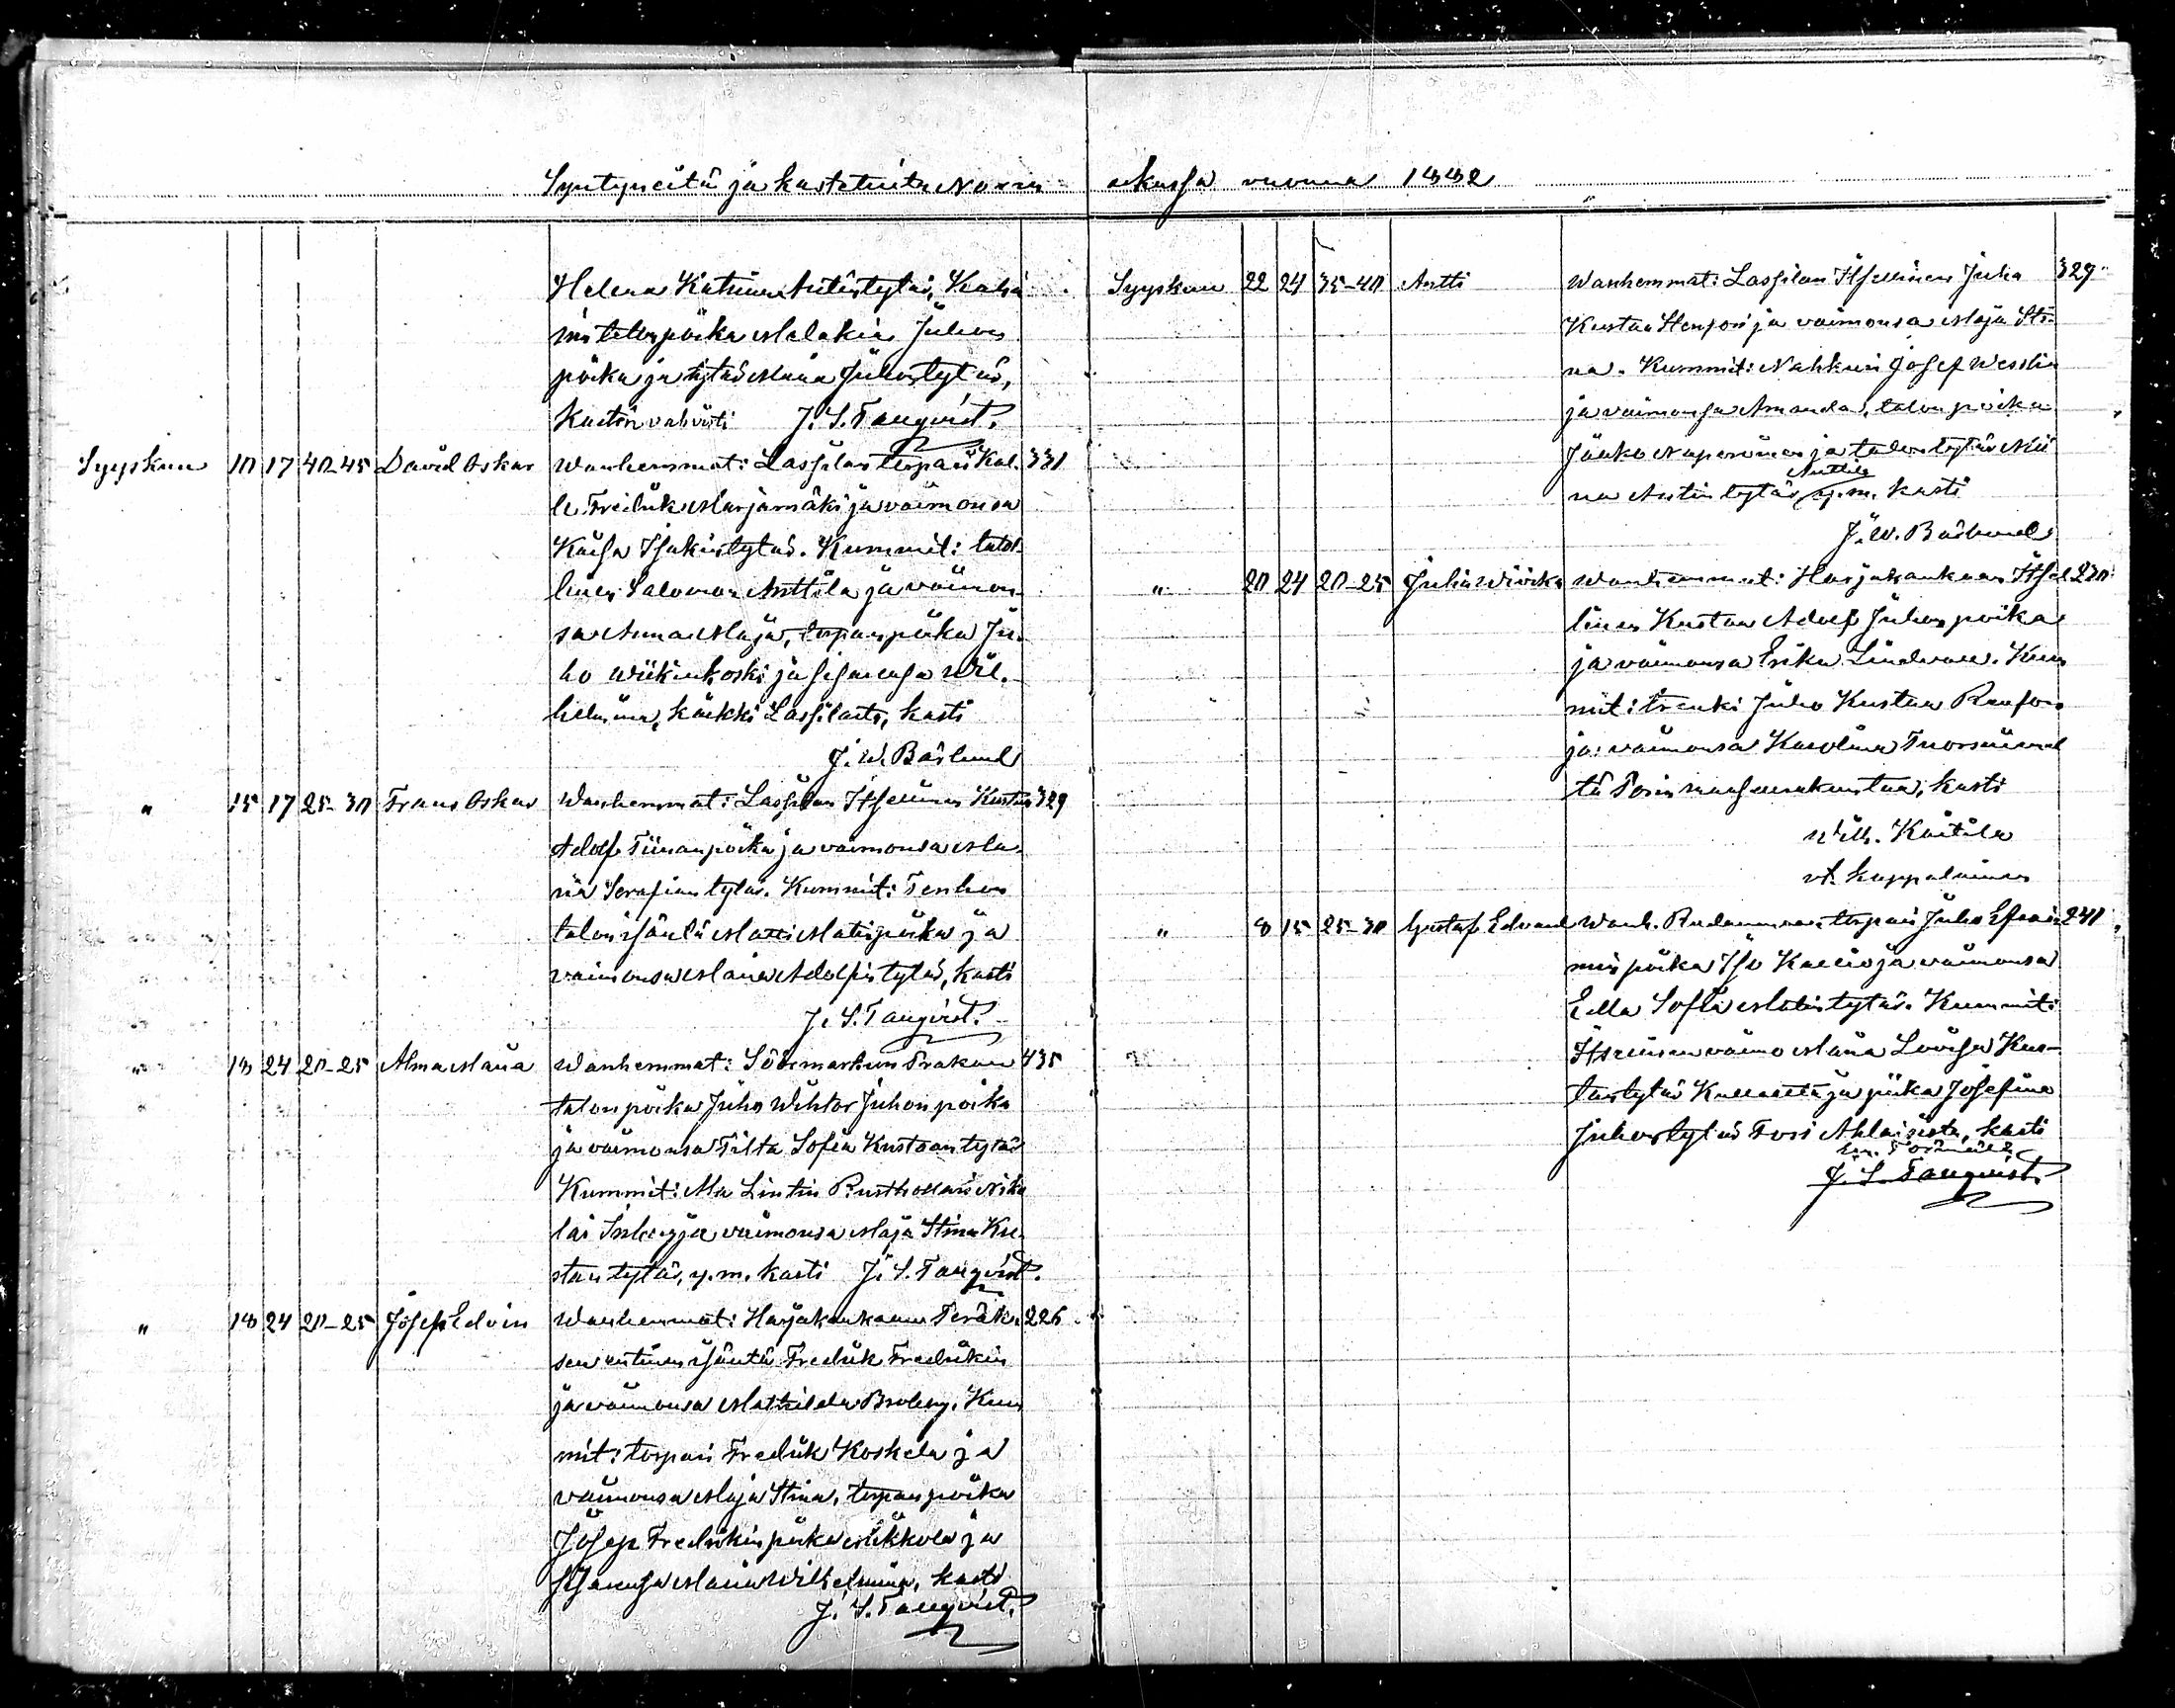 Syntyneitä ja kastetuita Noorm akussa vuonna 1882
Helena Katrina Antintytär,
talonpoika Malakia Juhon
poika ja tytär Maria Juhontytär,
J. S. Tanqvist.
Syyskuu 10 17 40-45 David Oskar Wanhemmat: Lassilan torpari Kal- 331
le Fredrik Marjamäki ja vaimonsa
Kaisa Isakintytär. Kummit: talol-
linen Salomon Anttila ja vaimon-
sa Anna Maja, torpanpoika Ju-
ho Wiikinkoski ja sisarensa Wil-
helmina, kaikki Lassilasta, kasti
J. W. Bäcklund
" 15 17 25-30 Frans Oskar Wanhemmat: Lassilan Itsellinen Kustaa 329
Adolf Tiinanpoika ja vaimonsa Ma-
ria Serafiantytär. Kummit:
talon isäntä Matti Matinpoika ja
vaimonsa Maria Adolfintytär, kasti
J. S. Tanqvist.
" 18 24 20-25 Alma Maria Wanhemmat: Södermarkun Prakun 435
talonpoika Juho Wihtor Juhonpoika
ja vaimonsa Tilta Sofia Kustaantytär
Kummit: Ala Lintin Rusthollari Niko
lai ja vaimonsa Maja Stina Ku-
stantytär, y.m. kasti J. S. Tanqvist.
" 18 24 20-25 Josef Edvin Wanhemmat: Harjakankaan 226
sen entinen isäntä Fredrik Fredrikin
ja vaimonsa Mathilda Broberg. Kum
mit: torpari Fredrik Koskela ja
vaimonsa Maja Stina, torpanpoika
Josep Fredrikinpoika Mikkola ja
sisarensa Maria Wilhelmina, kasti
J. S. Tanqvist.
Syyskuu 22 24 35-40 Antti Wanhemmat: Lassilan Itsellinen Juha 329
Kustaa Stenfors ja vaimonsa Maja Sti-
na. Kummit: Nahkuri Josef Wesslin
ja vaimonsa Amanda, talonpoika
Jaako ja talontytär Mii
na Antintytär Anttila y.m. kasti
J. W. Bäcklund
" 20 24 20-25 Juha Wiörki Wanhemmat: Harjakankaan Itsel 230
linen Kustaa Adolf Juhonpoika
ja vaimonsa Erika Lindvall. Kum
mit: trenki Juho Kustaa
ja vaimonsa Karolina
tä Porin maaseurakuntaa, kasti
Wilh. Kaitila
vt. kappalainen
" 8 15 25-30 Gustaf Edvard Wanh. torpari Juho Efrai 240
min poika Iso Kallio ja vaimonsa
Ella Sofia Matintytär. Kummit:
Itsellisen vaimo Maria Lovisa Kus-
tantytär ja piika Josefina
Juhontytär Ahlaisista, kasti
J. S. Tanqvist.